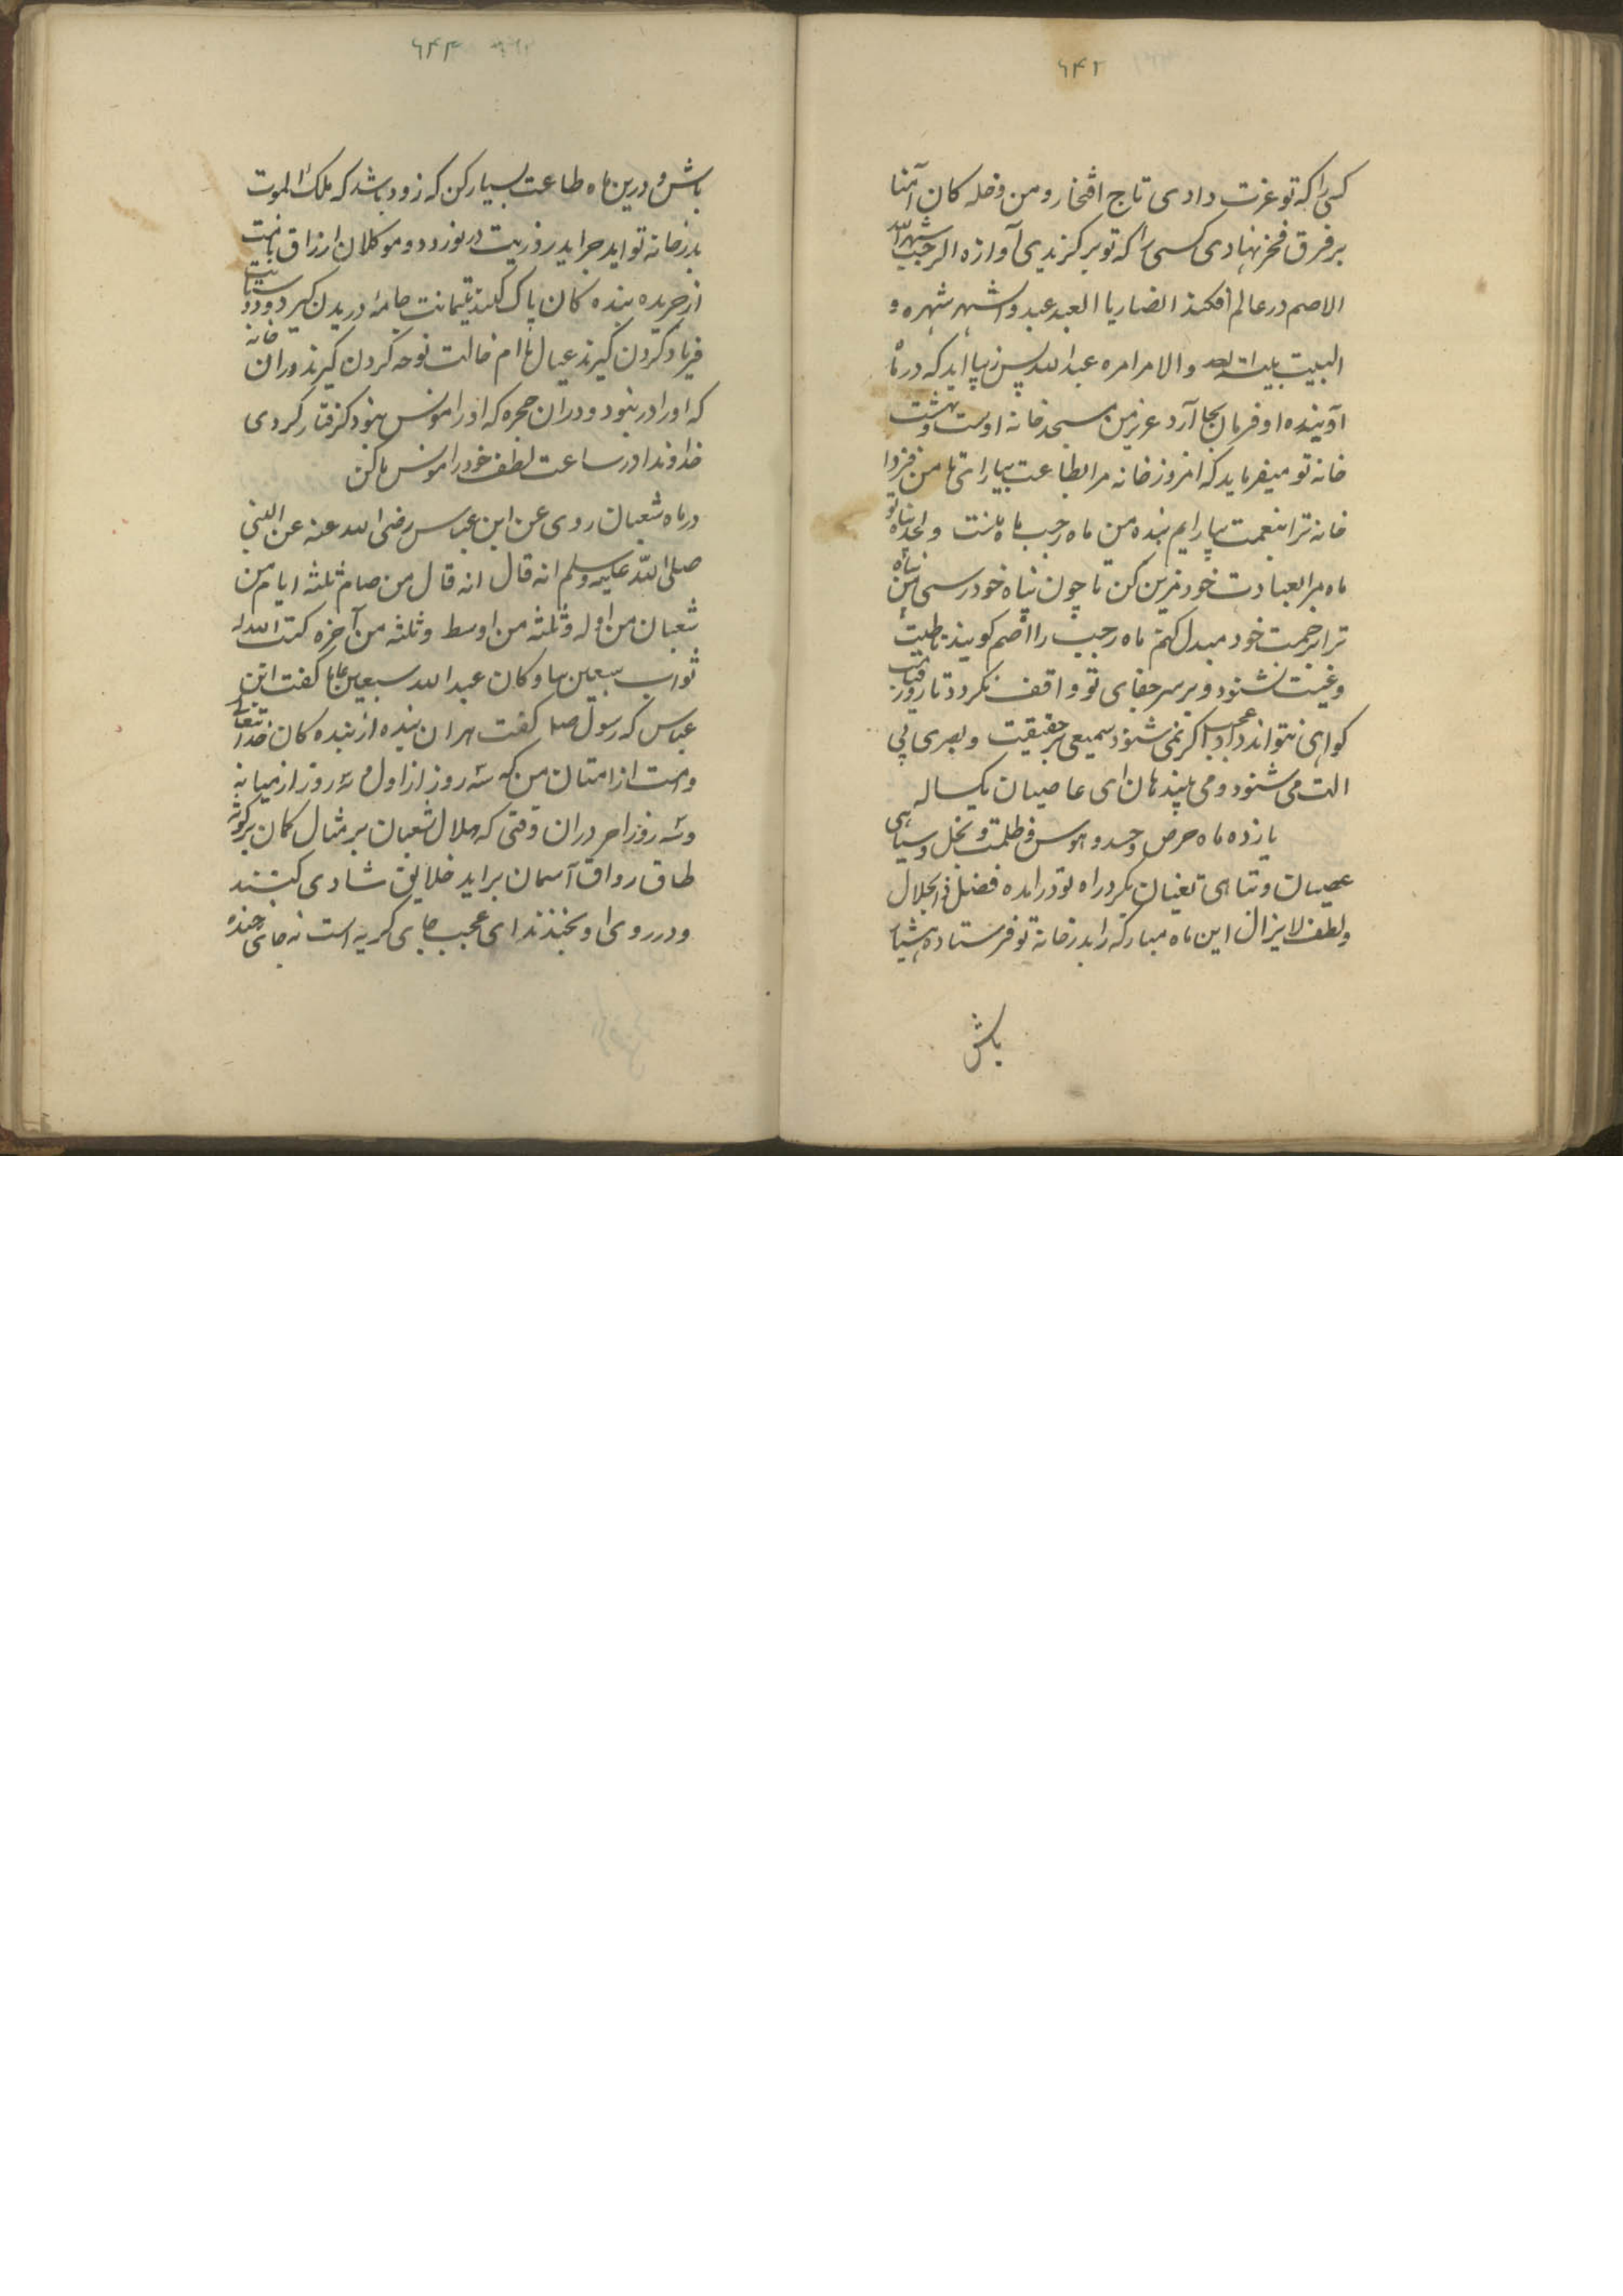 ۶۴۲
کسی را که تو عزت دادی تاج افتخار و من دخله کان آمنا
بر فرق فخر نهادی کسی را که تو برگزیدی آوازه الرجب شهر الله
الاصم در عالم افکند العبد عبد و الشهر شهره و
البیت بیت الله و الامر امره عبد الله پس زیبا اید که در ماه
او بنده او فرمان بجا آرد عزیز من مسجد خانه اوست و بهشت
خانه تو میفرماید که امروز خانه مرا بطاعت بیارای تا من فردا
خانه ترا بنعمت بیارایم بنده من ماه رجب ماه منست و لحد
ماه مرا بعبادت خود مزین کن تا چون بپناه خود رسی من
ترا برحمت خود مبدل کنم ماه رجب را اصم کویند تا طیبت
و غیبت نشنود و بر سر جفای تو واقف نکردد تا روز قیامت
کواهی نتواند داد عجب اکر نمی شنود سمیعی بر حقیقت و بصری بی
الت می شنود و می بیند هان ای عاصیان یکساله
یازده ماه حرص و حسد و هوس و ظلمت و بخل و سیاهی
عصیان و تباهی تغیان بکرد راه تو در امده فضل ذو الجلال
و لطف لایزال این ماه مبارکه را بدر خانه تو فرستاده هشیار
باش
۶۴۳
باش و درین ماه طاعت بسیار کن که زود باشد که ملک الموت
بدر خانه تو اید جراید روزیت در نوردد و موکلان ارزاق نامت
از جریده بنده کان پاک کنند یتیمانت جامه دریدن کیرد و
فریاد کردن کیرند عیال نوحه کردن کیرند در ان خانه
که او را در نبود و در ان حجره که او را مونس نبود کرفتار کردی
خداوندا در ساعت لطف خود را مونس ما کن
در ماه شعبان روی عن ابن عباس رضی الله عنه عن النبی
صلی الله علیه وسلم انه قال انه قال من صام ثلثه ایام من
شعبان من اوله و ثلثه من اوسط و ثلثه من آخره کتب الله له
ثواب سبعین و کان عبد الله سبعین عاما کفت ابن
عباس که رسول صلم کفت هر ان بنده از بنده کان خدا تعالی
و امت از امتان من که سه روز از اول و سه روز از میانه
و سه روز اخر در ان وقتی که هلال شعبان بر مثال کمان بر کوشه
طاق رواق آسمان براید خلایق شادی کنند
و در روی او بخندند ای عجب جای کریه است نه جای خنده